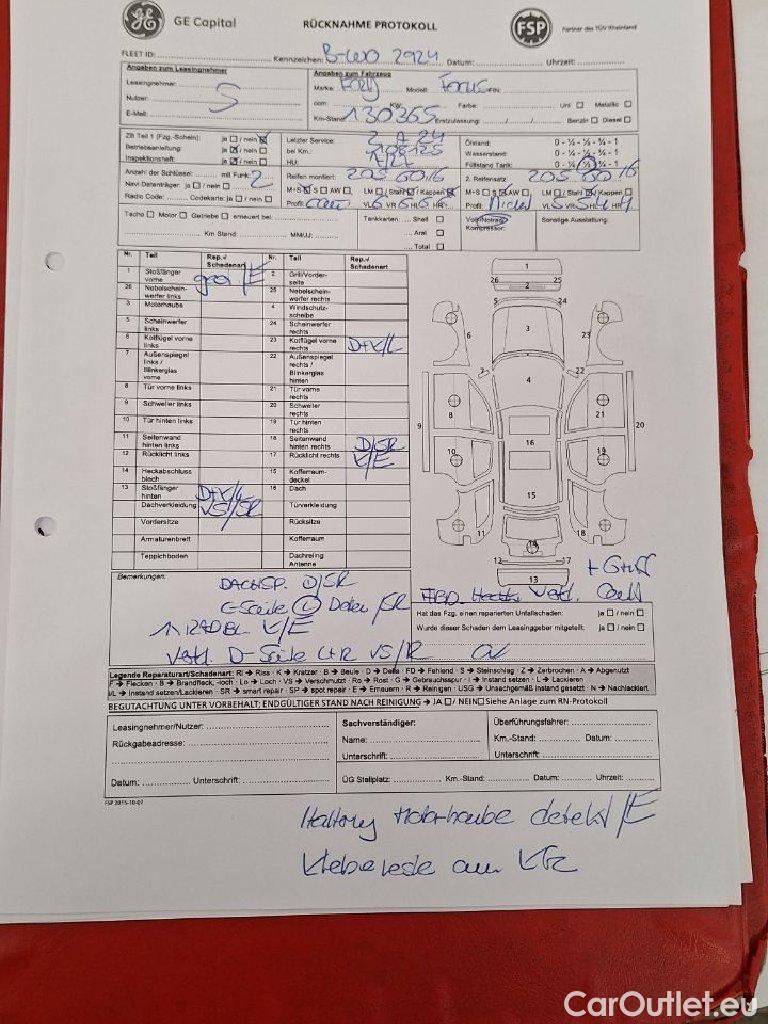 GE Capital RÜCKNAHME PROTOKOLL FSP Partner des TÜV Rheinland
FLEET ID: Kennzeichen: B-WO 2924 Datum: Uhrzeit:
Angaben zum Leasingnehmer Angaben zum Fahrzeug
Leasingnehmer: Marke: Ford Modell: Focus FIN:
Nutzer: S com KW Farbe: Uni □ Metallic □
E-Mail: Km-Stand 130365 Erstzulassung: / / Benzin □ Diesel □
ZB Teil 1 (Fzg.-Schein): ja □ / nein ☑ Letzter Service: Ölstand: 0 - ¼ - ½ - ¾ - 1
Betriebsanleitung: ja ☑ / nein □ bei Km.: Wasserstand: 0 - ¼ - ½ - ¾ - 1
Inspektionsheft: ja ☑ / nein □ HU: Füllstand Tank: 0 - ¼ - ½ - ¾ - 1
Anzahl der Schlüssel: mit Funk: 2 Reifen montiert: 205 60 16 2. Reifensatz: 205 60 16
Navi Datenträger: ja □ / nein □ M+S ☑ S □ AW □ LM □ / Stahl ☑ / Kappen ☑ M+S □ S ☑ AW □ LM □ / Stahl ☑ / Kappen □
Radio Code: Codekarte: ja □ / nein □ Profil: VL 6 VR 6 HL 6 HR Profil: VL 5 VR 5 HL 4 HR 4
Tacho □ Motor □ Getriebe □ erneuert bei: Tankkarten: Shell □ Voll-/Notrad Sonstige Ausstattung:
Aral □ Kompressor:
Km Stand: MM/JJ: Total □
Nr. Teil Rep.-/ Schadenart Nr. Teil Rep.-/ Schadenart
1 Stoßfänger vorne /E 2 Grill/Vorderseite
26 Nebelscheinwerfer links 25 Nebelscheinwerfer rechts
3 Motorhaube 4 Windschutzscheibe
5 Scheinwerfer links 24 Scheinwerfer rechts
6 Kotflügel vorne links 23 Kotflügel vorne rechts D+K/L
7 Außenspiegel links / Blinkerglas vorne 22 Außenspiegel rechts / Blinkerglas hinten
8 Tür vorne links 21 Tür vorne rechts
9 Schweller links 20 Schweller rechts
10 Tür hinten links 19 Tür hinten rechts
11 Seitenwand hinten links 18 Seitenwand hinten rechts D/SR
12 Rücklicht links 17 Rücklicht rechts K/E
14 Heckabschluss blech 15 Kofferraumdeckel
13 Stoßfänger hinten D+K/L 16 Dach
Dachverkleidung VS/SR Türverkleidung
Vordersitze Rücksitze
Armaturenbrett Kofferraum
Teppichboden Dachreling Antenne
1
26 25
2
5 24
6 3 23
7 4 22
8 21
9 20
10 16 19
15
11 14 18
12 17
13
Bemerkungen:
DACHSP. D/SR
/SR
1x RADBL K/E
Verkl. D-Säule L+R VS/SR
Verkl.
Hat das Fzg. einen reparierten Unfallschaden: ja □ / nein □
Wurde dieser Schaden dem Leasinggeber mitgeteilt: ja □ / nein □
Legende Reparaturart/Schadenart: RI → Riss · K → Kratzer · B → Beule · D → Delle · FD → Fehlend · S → Steinschlag · Z → Zerbrochen · A → Abgenutzt
F → Flecken · B → Brandfleck, -loch · Lo → Loch · VS → Verschmutzt · Ro → Rost · G → Gebrauchsspur · I → Instand setzen · L → Lackieren
I/L → Instand setzen/Lackieren · SR → smart repair · SP → spot repair · E → Erneuern · R → Reinigen · USG → Unsachgemäß instand gesetzt · N → Nachlackiert
BEGUTACHTUNG UNTER VORBEHALT; ENDGÜLTIGER STAND NACH REINIGUNG → JA □/ NEIN □ Siehe Anlage zum RN-Protokoll
Leasingnehmer/Nutzer: Sachverständiger: Überführungsfahrer:
Rückgabeadresse: Name: Km.-Stand: Datum:
Unterschrift: Unterschrift:
Datum: Unterschrift: ÜG Stellplatz: Km.-Stand: Datum: Uhrzeit:
FSP 20035-10-07
Halterung Motorhaube defekt /E
Klebereste am Kfz
CarOutlet.eu